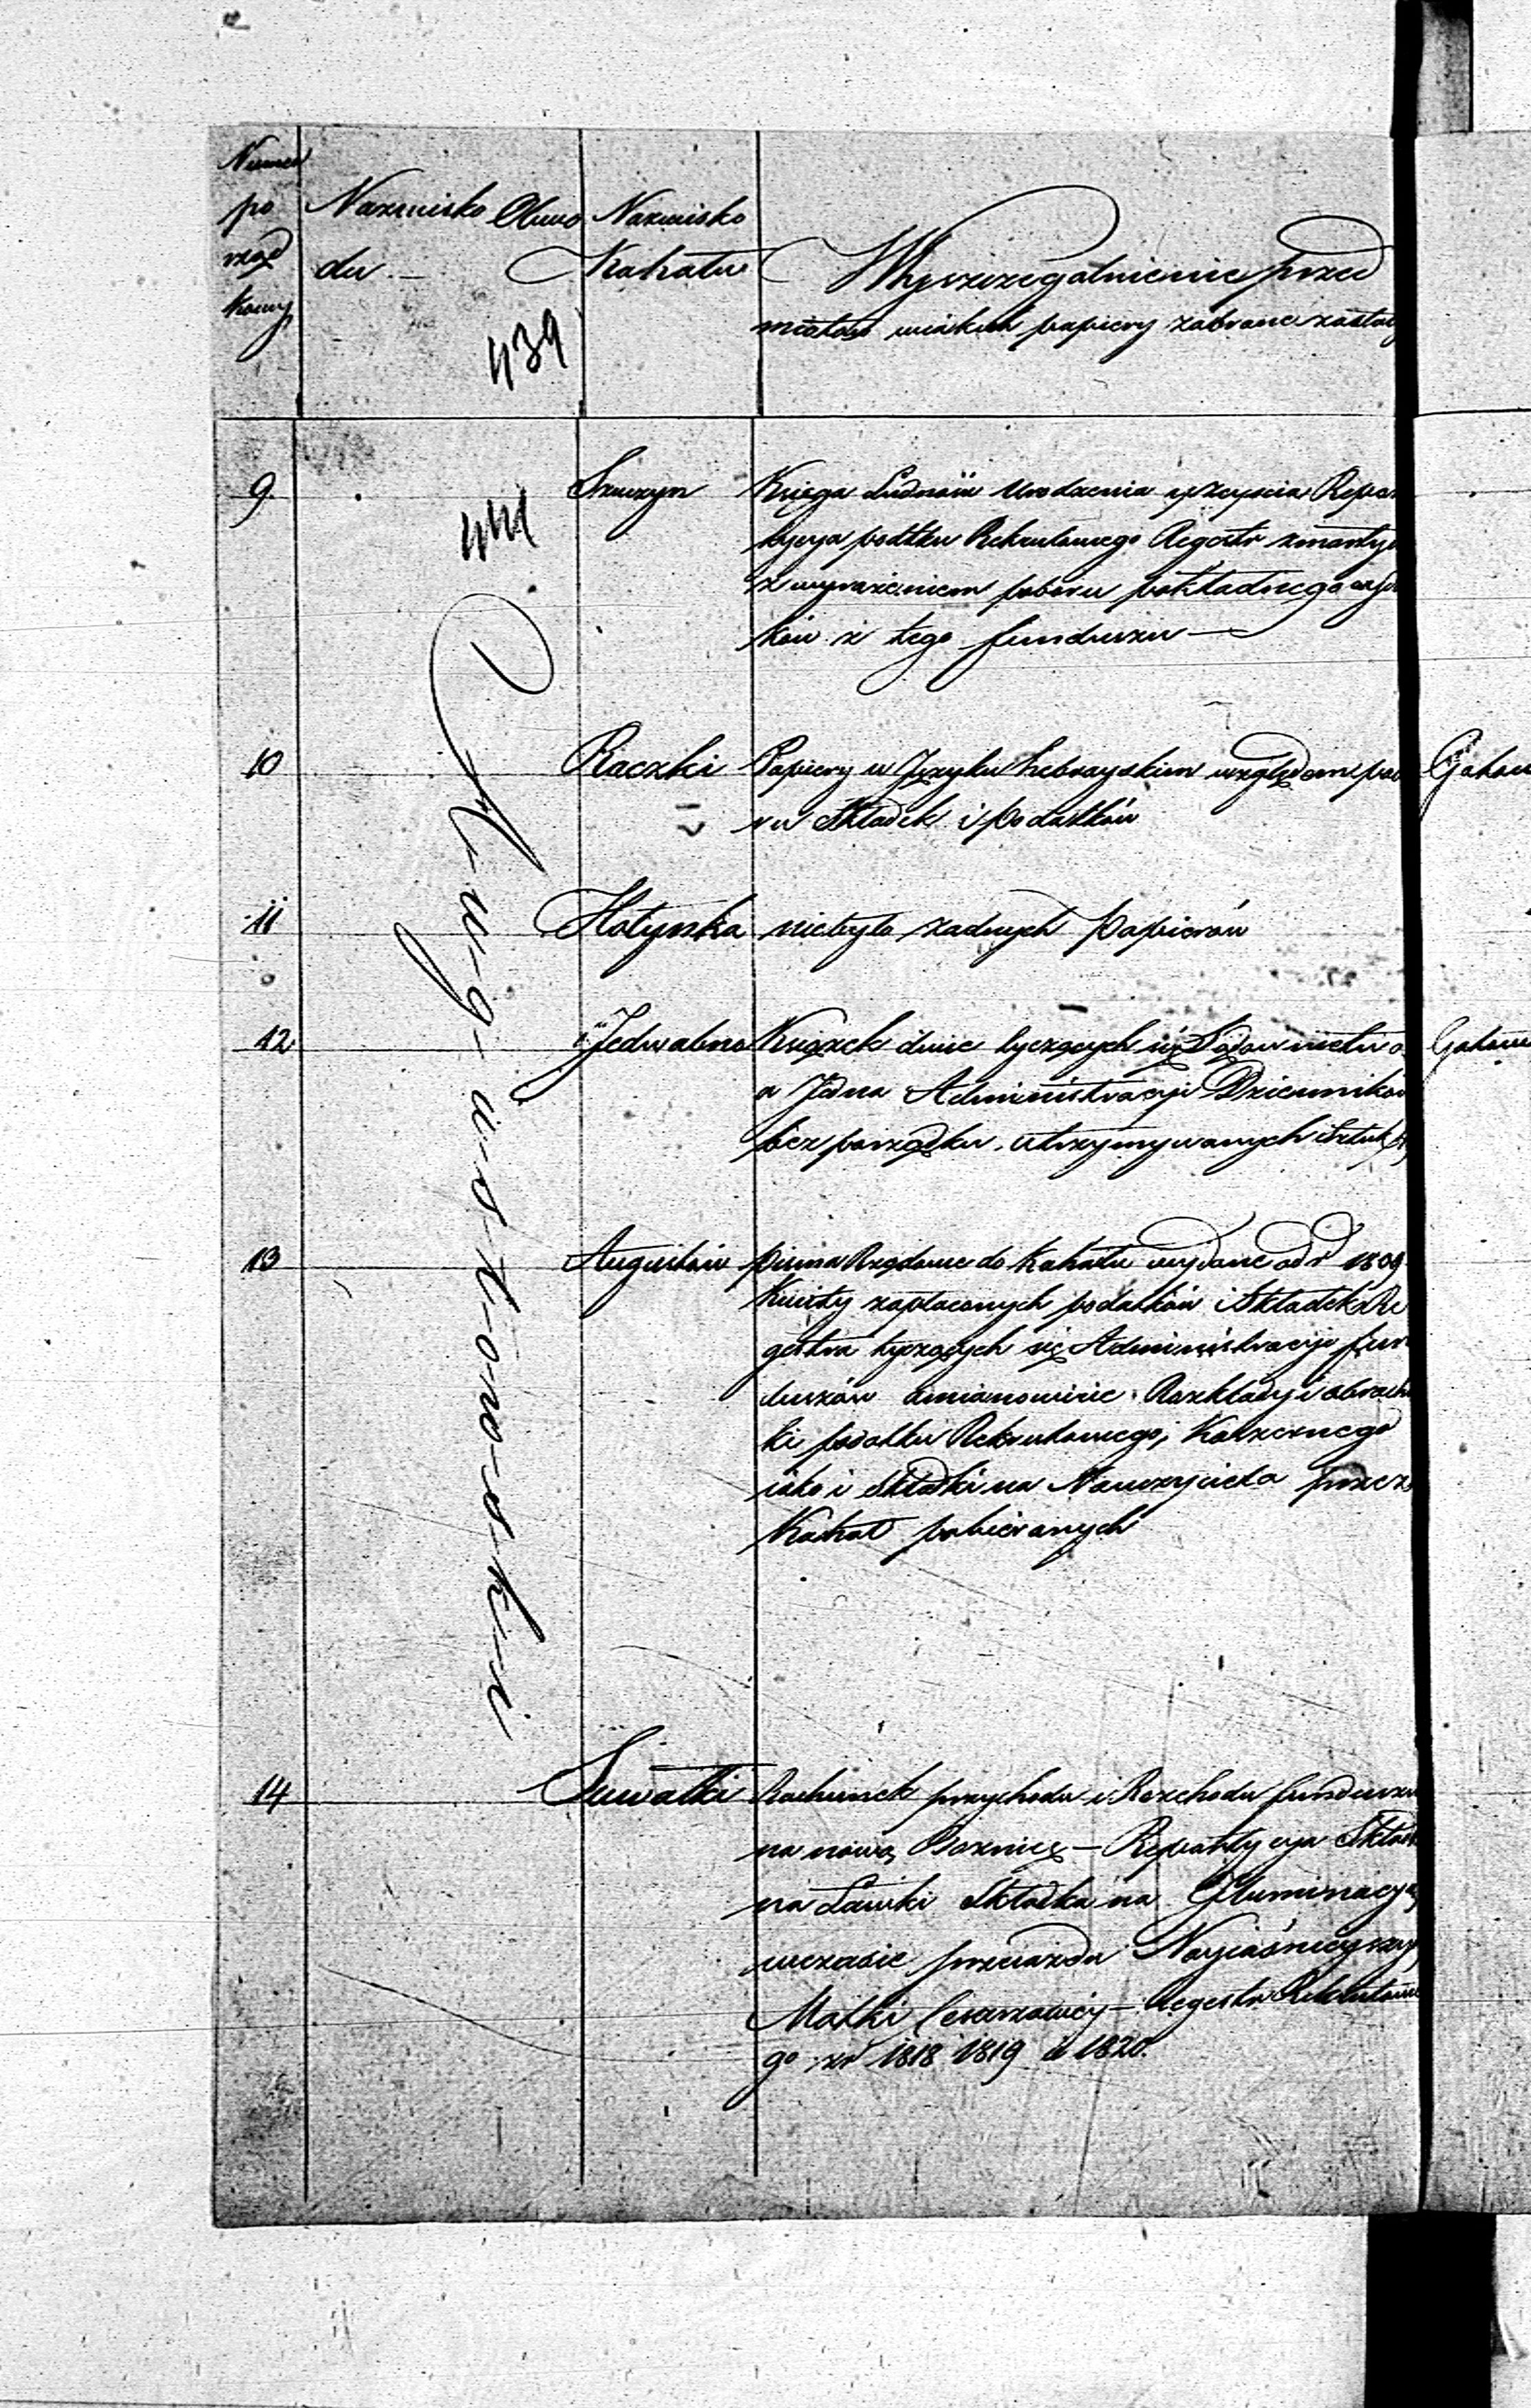 Numer
po
rząd
kowy
Nazwisko Obwo
du
Nazwisko
Kahału
Wyszczegolnienie przed
miotow w iakich papiery zabrane zostały
439
441
Augustowski
9
Szczuczyn
Księga Ludności Urodzenia y zeyscia Repar
tycya podtku Rekrutowego Regestr zmarłych
z wyrażeniem poboru pokładnego
ków z tego funduszu
10
Raczki
Papiery w Języku hebrayskim względem pobo
ru Składek i podatków
11
Hołynka
niebyło żadnych papierów
12
Jedwabno
Książek dwie tyczących się Sądownictwa
a Jedna Administracyi Dzienników
bez porządku utrzymywanych sztuk
13
Augustów
pisma Rządowe do Kahału wydane od r 1809
Kwity zapłaconych podatków i Składek Re
gestra tyczących się Administracyi fun
duszów amianowicie Rozkłady i obrachun
ki podatku Rekrutowego, Koszernego
iako i Składki na Nauczyciela przez
Kahał pobieranych
14
Suwałki
Rachunek przychodu i Rozchodu funduszu
na nową Boznicę – Repartycya Składki
na Ławki Składka na Illuminacyą
wczasie przeiazdu Nayiaśnieyszey
Matki Cesarzowéy – Regestr Rekrutowe
go zr 1818 1819 i 1820.